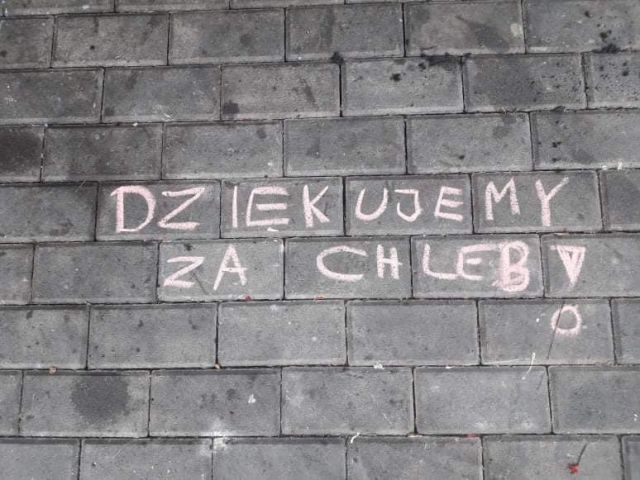 DZIĘKUJEMY
ZA CHLEB!